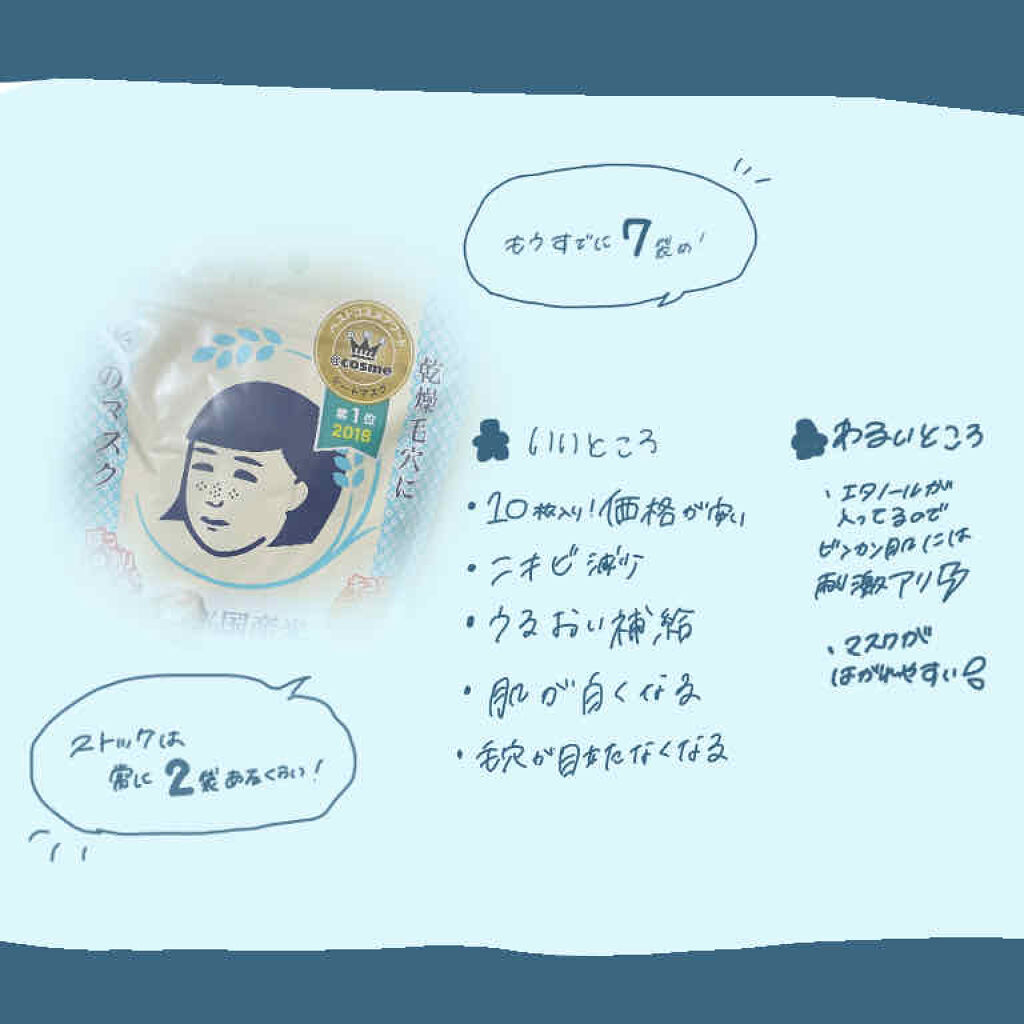 もうすでに7袋め!
ベストコスメアワード
@cosme
シートマスク
第1位
2018
乾燥毛穴に
のマスク
国産米
いいところ
・10枚入り!価格が安い
・ニキビ減少
・うるおい補給
・肌が白くなる
・毛穴が目立たなくなる
わるいところ
・エタノールが
入ってるので
ビンカン肌には
刺激アリ
・マスクが
はがれやすい
ストックは
常に2袋あるくらい!